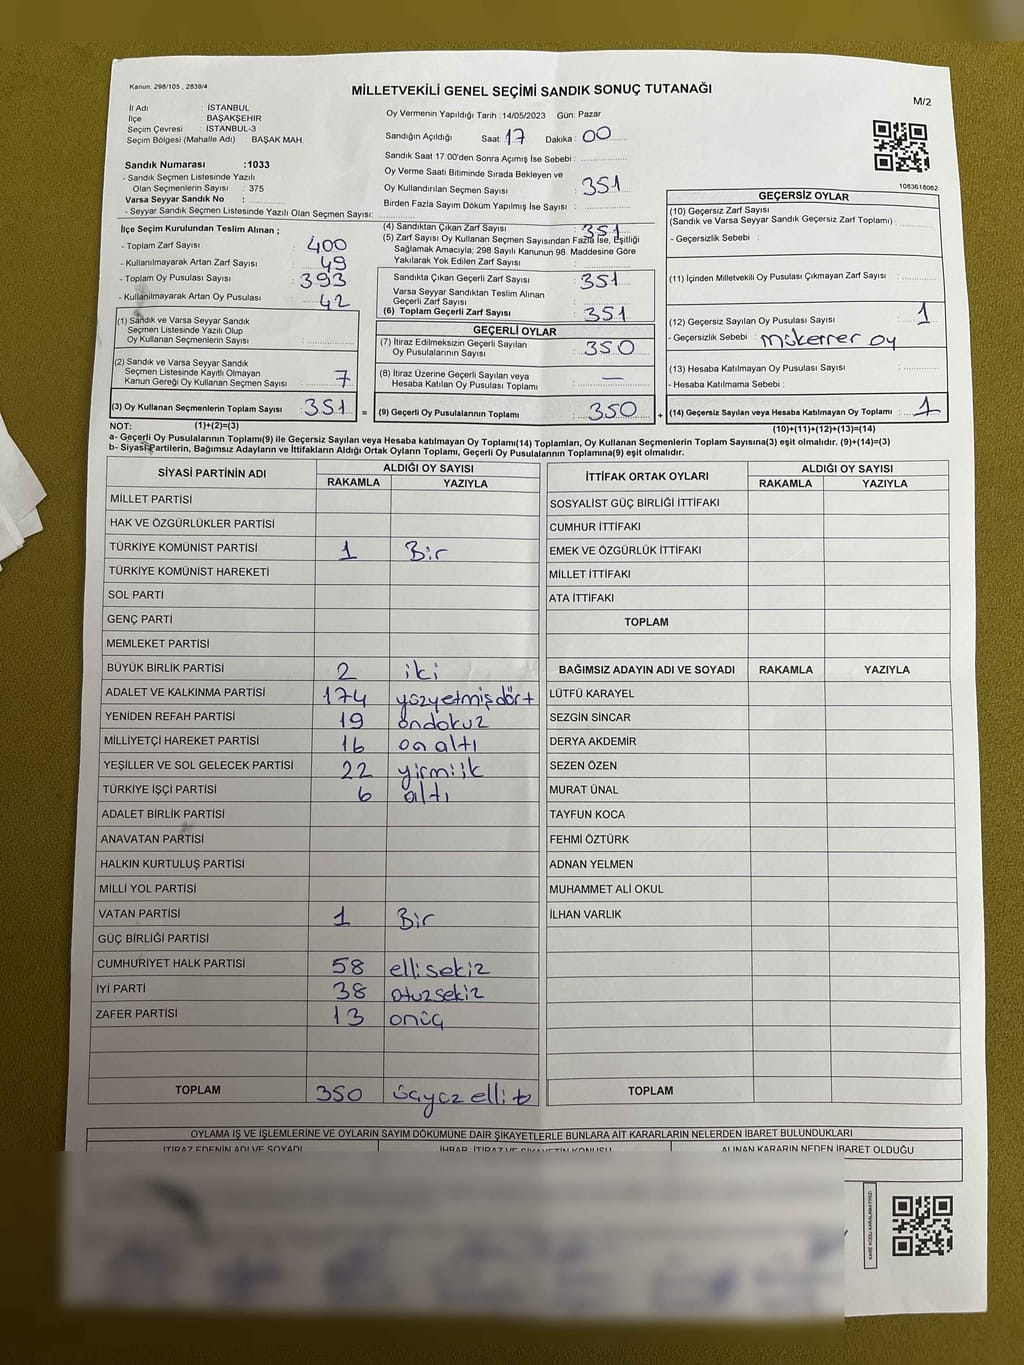 Kanun: 298/105 , 2839/4
MİLLETVEKİLİ GENEL SEÇİMİ SANDIK SONUÇ TUTANAĞI
M/2
İl Adı : İSTANBUL
İlçe : BAŞAKŞEHİR
Seçim Çevresi : İSTANBUL-3
Seçim Bölgesi (Mahalle Adı) : BAŞAK MAH.
Oy Vermenin Yapıldığı Tarih : 14/05/2023 Gün: Pazar
Sandığın Açıldığı Saat: 17 Dakika : 00
Sandık Saat 17:00'den Sonra Açımış İse Sebebi :
Oy Verme Saati Bitiminde Sırada Bekleyen ve
Oy Kullandırılan Seçmen Sayısı : 351
Birden Fazla Sayım Döküm Yapılmış İse Sayısı :
Sandık Numarası :1033
- Sandık Seçmen Listesinde Yazılı
Olan Seçmenlerin Sayısı : 375
Varsa Seyyar Sandık No :
- Seyyar Sandık Seçmen Listesinde Yazılı Olan Seçmen Sayısı:
1083618062
İlçe Seçim Kurulundan Teslim Alınan ;
- Toplam Zarf Sayısı : 400
- Kullanılmayarak Artan Zarf Sayısı : 49
- Toplam Oy Pusulası Sayısı : 393
- Kullanılmayarak Artan Oy Pusulası : 42
(1) Sandık ve Varsa Seyyar Sandık
Seçmen Listesinde Yazılı Olup
Oy Kullanan Seçmenlerin Sayısı :
(2) Sandık ve Varsa Seyyar Sandık
Seçmen Listesinde Kayıtlı Olmayan
Kanun Gereği Oy Kullanan Seçmen Sayısı : 7
(3) Oy Kullanan Seçmenlerin Toplam Sayısı : 351 =
(4) Sandıktan Çıkan Zarf Sayısı : 351
(5) Zarf Sayısı Oy Kullanan Seçmen Sayısından Fazla İse, Eşitliği
Sağlamak Amacıyla; 298 Sayılı Kanunun 98. Maddesine Göre
Yakılarak Yok Edilen Zarf Sayısı :
Sandıkta Çıkan Geçerli Zarf Sayısı : 351
Varsa Seyyar Sandıktan Teslim Alınan
Geçerli Zarf Sayısı :
(6) Toplam Geçerli Zarf Sayısı : 351
GEÇERLİ OYLAR
(7) İtiraz Edilmeksizin Geçerli Sayılan
Oy Pusulalarının Sayısı : 350
(8) İtiraz Üzerine Geçerli Sayılan veya
Hesaba Katılan Oy Pusulası Toplamı : —
(9) Geçerli Oy Pusulalarının Toplamı : 350 +
GEÇERSİZ OYLAR
(10) Geçersiz Zarf Sayısı
(Sandık ve Varsa Seyyar Sandık Geçersiz Zarf Toplamı) :
- Geçersizlik Sebebi :
(11) İçinden Milletvekili Oy Pusulası Çıkmayan Zarf Sayısı :
(12) Geçersiz Sayılan Oy Pusulası Sayısı : 1
- Geçersizlik Sebebi : mükerrer oy
(13) Hesaba Katılmayan Oy Pusulası Sayısı :
- Hesaba Katılmama Sebebi :
(14) Geçersiz Sayılan veya Hesaba Katılmayan Oy Toplamı : 1
NOT: (1)+(2)=(3)
(10)+(11)+(12)+(13)=(14)
a- Geçerli Oy Pusulalarının Toplamı(9) ile Geçersiz Sayılan veya Hesaba katılmayan Oy Toplamı(14) Toplamları, Oy Kullanan Seçmenlerin Toplam Sayısına(3) eşit olmalıdır. (9)+(14)=(3)
b- Siyasi Partilerin, Bağımsız Adayların ve İttifakların Aldığı Ortak Oyların Toplamı, Geçerli Oy Pusulalarının Toplamına(9) eşit olmalıdır.
SİYASİ PARTİNİN ADI ALDIĞI OY SAYISI
RAKAMLA YAZIYLA
MİLLET PARTİSİ
HAK VE ÖZGÜRLÜKLER PARTİSİ
TÜRKİYE KOMÜNİST PARTİSİ 1 Bir
TÜRKİYE KOMÜNİST HAREKETİ
SOL PARTİ
GENÇ PARTİ
MEMLEKET PARTİSİ
BÜYÜK BİRLİK PARTİSİ 2 iki
ADALET VE KALKINMA PARTİSİ 174 yüzyetmişdört
YENİDEN REFAH PARTİSİ 19 ondokuz
MİLLİYETÇİ HAREKET PARTİSİ 16 on altı
YEŞİLLER VE SOL GELECEK PARTİSİ 22 yirmiik
TÜRKİYE İŞÇİ PARTİSİ 6 altı
ADALET BİRLİK PARTİSİ
ANAVATAN PARTİSİ
HALKIN KURTULUŞ PARTİSİ
MİLLİ YOL PARTİSİ
VATAN PARTİSİ 1 Bir
GÜÇ BİRLİĞİ PARTİSİ
CUMHURİYET HALK PARTİSİ 58 ellisekiz
İYİ PARTİ 38 otuzsekiz
ZAFER PARTİSİ 13 onüç
TOPLAM 350
İTTİFAK ORTAK OYLARI ALDIĞI OY SAYISI
RAKAMLA YAZIYLA
SOSYALİST GÜÇ BİRLİĞİ İTTİFAKI
CUMHUR İTTİFAKI
EMEK VE ÖZGÜRLÜK İTTİFAKI
MİLLET İTTİFAKI
ATA İTTİFAKI
TOPLAM
BAĞIMSIZ ADAYIN ADI VE SOYADI RAKAMLA YAZIYLA
LÜTFÜ KARAYEL
SEZGİN SİNCAR
DERYA AKDEMİR
SEZEN ÖZEN
MURAT ÜNAL
TAYFUN KOCA
FEHMİ ÖZTÜRK
ADNAN YELMEN
MUHAMMET ALİ OKUL
İLHAN VARLIK
TOPLAM
OYLAMA İŞ VE İŞLEMLERİNE VE OYLARIN SAYIM DÖKÜMÜNE DAİR ŞİKAYETLERLE BUNLARA AİT KARARLARIN NELERDEN İBARET BULUNDUKLARI
İTİRAZ EDENİN ADI VE SOYADI İHBAR, İTİRAZ VE ŞİKAYETİN KONUSU ALINAN KARARIN NEDEN İBARET OLDUĞU
KARE KODU KARALAMAYINIZ!